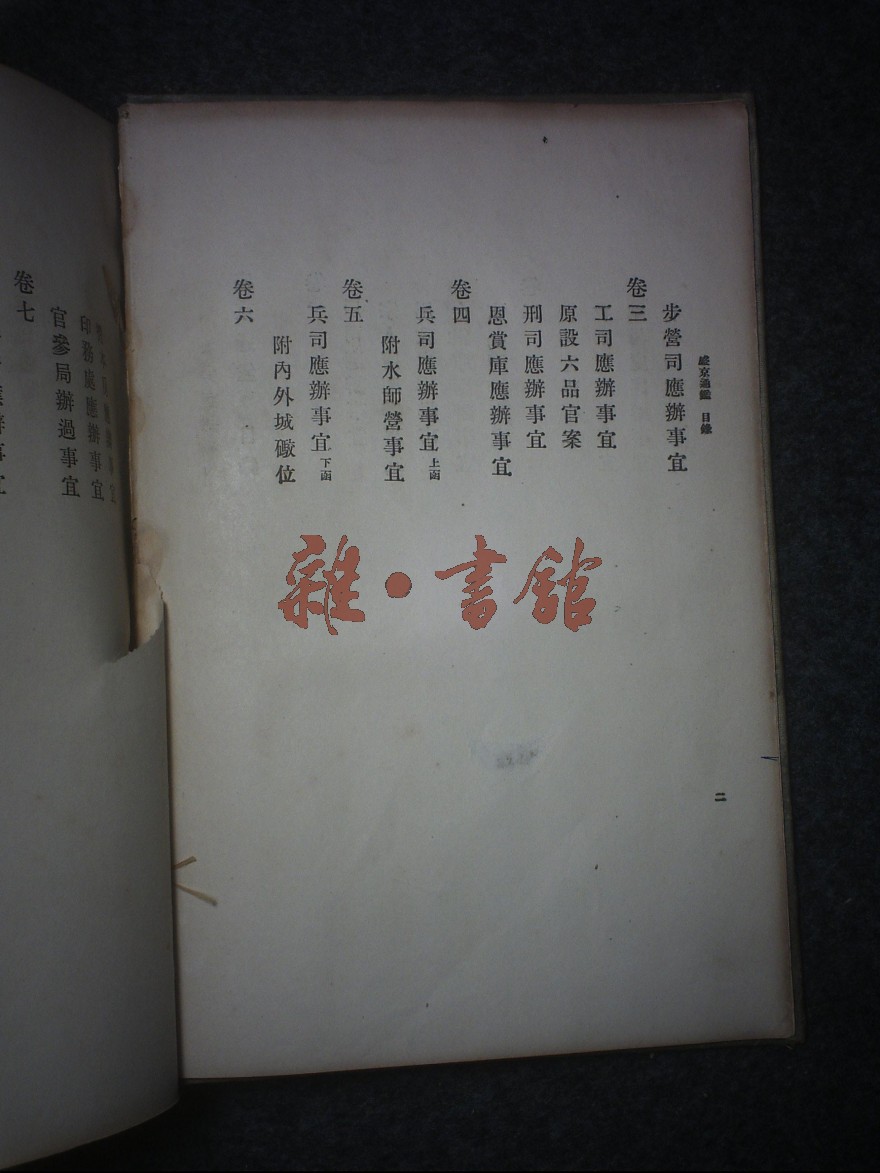 盛京通鑑 目錄
二
步營司應辦事宜
卷三
工司應辦事宜
原設六品官案
刑司應辦事宜
恩賞庫應辦事宜
卷四
兵司應辦事宜 上函
附水師營事宜
卷五
兵司應辦事宜 下函
附內外城礮位
卷六
印務處應辦事宜
官參局辦過事宜
卷七
雜·書館